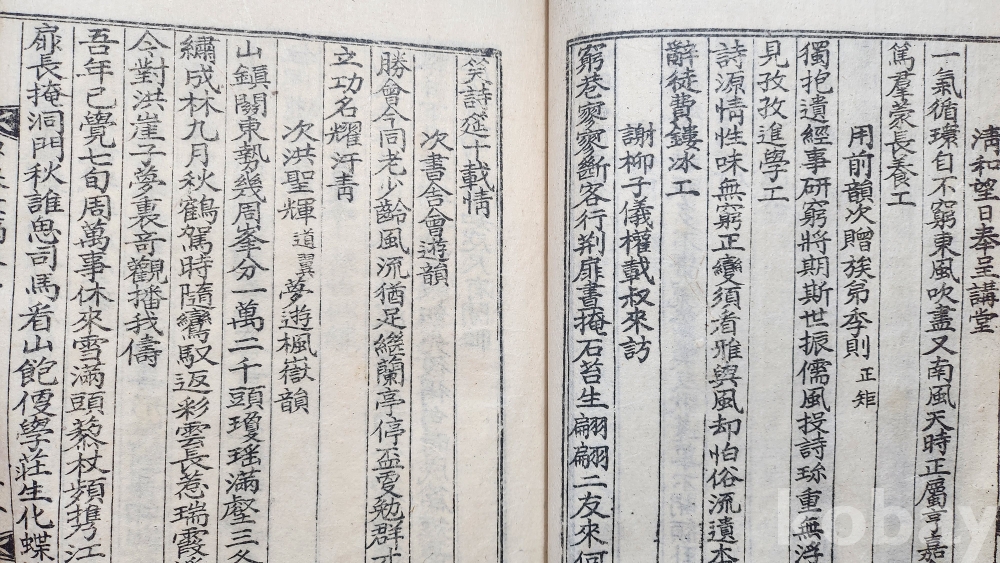 清和望日奉呈講堂
一氣循環自不窮東風吹盡又南風天時正屬亨嘉
篤羣蒙長養工
用前韻次贈族弟季則正矩
獨抱遺經事研窮將期斯世振儒風投詩珎重無浮
見孜孜進學工
詩源情性味無窮正變須看雅與風却怕俗流遺本
辭徒費鏤冰工
謝柳子儀權載叔來訪
窮巷寥寥斷客行荆扉晝掩石苔生翩翩二友來何
笑詩筵十載情
次書舍會遊韻
勝會今同老少齡風流猶足繼蘭亭停盃更勉群才
立功名耀汗青
次洪聖輝道翼夢遊楓嶽韻
山鎮關東勢幾周峯分一萬二千頭瓊瑤滿壑三冬
繡成林九月秋鶴駕時隨鸞馭返彩雲長惹瑞霞
今對洪崖子夢裏奇觀播我儔
吾年已覺七旬周萬事休來雪滿頭藜杖頻携江
扉長掩洞門秋誰思司馬看山飽優學莊生化蝶
kobay